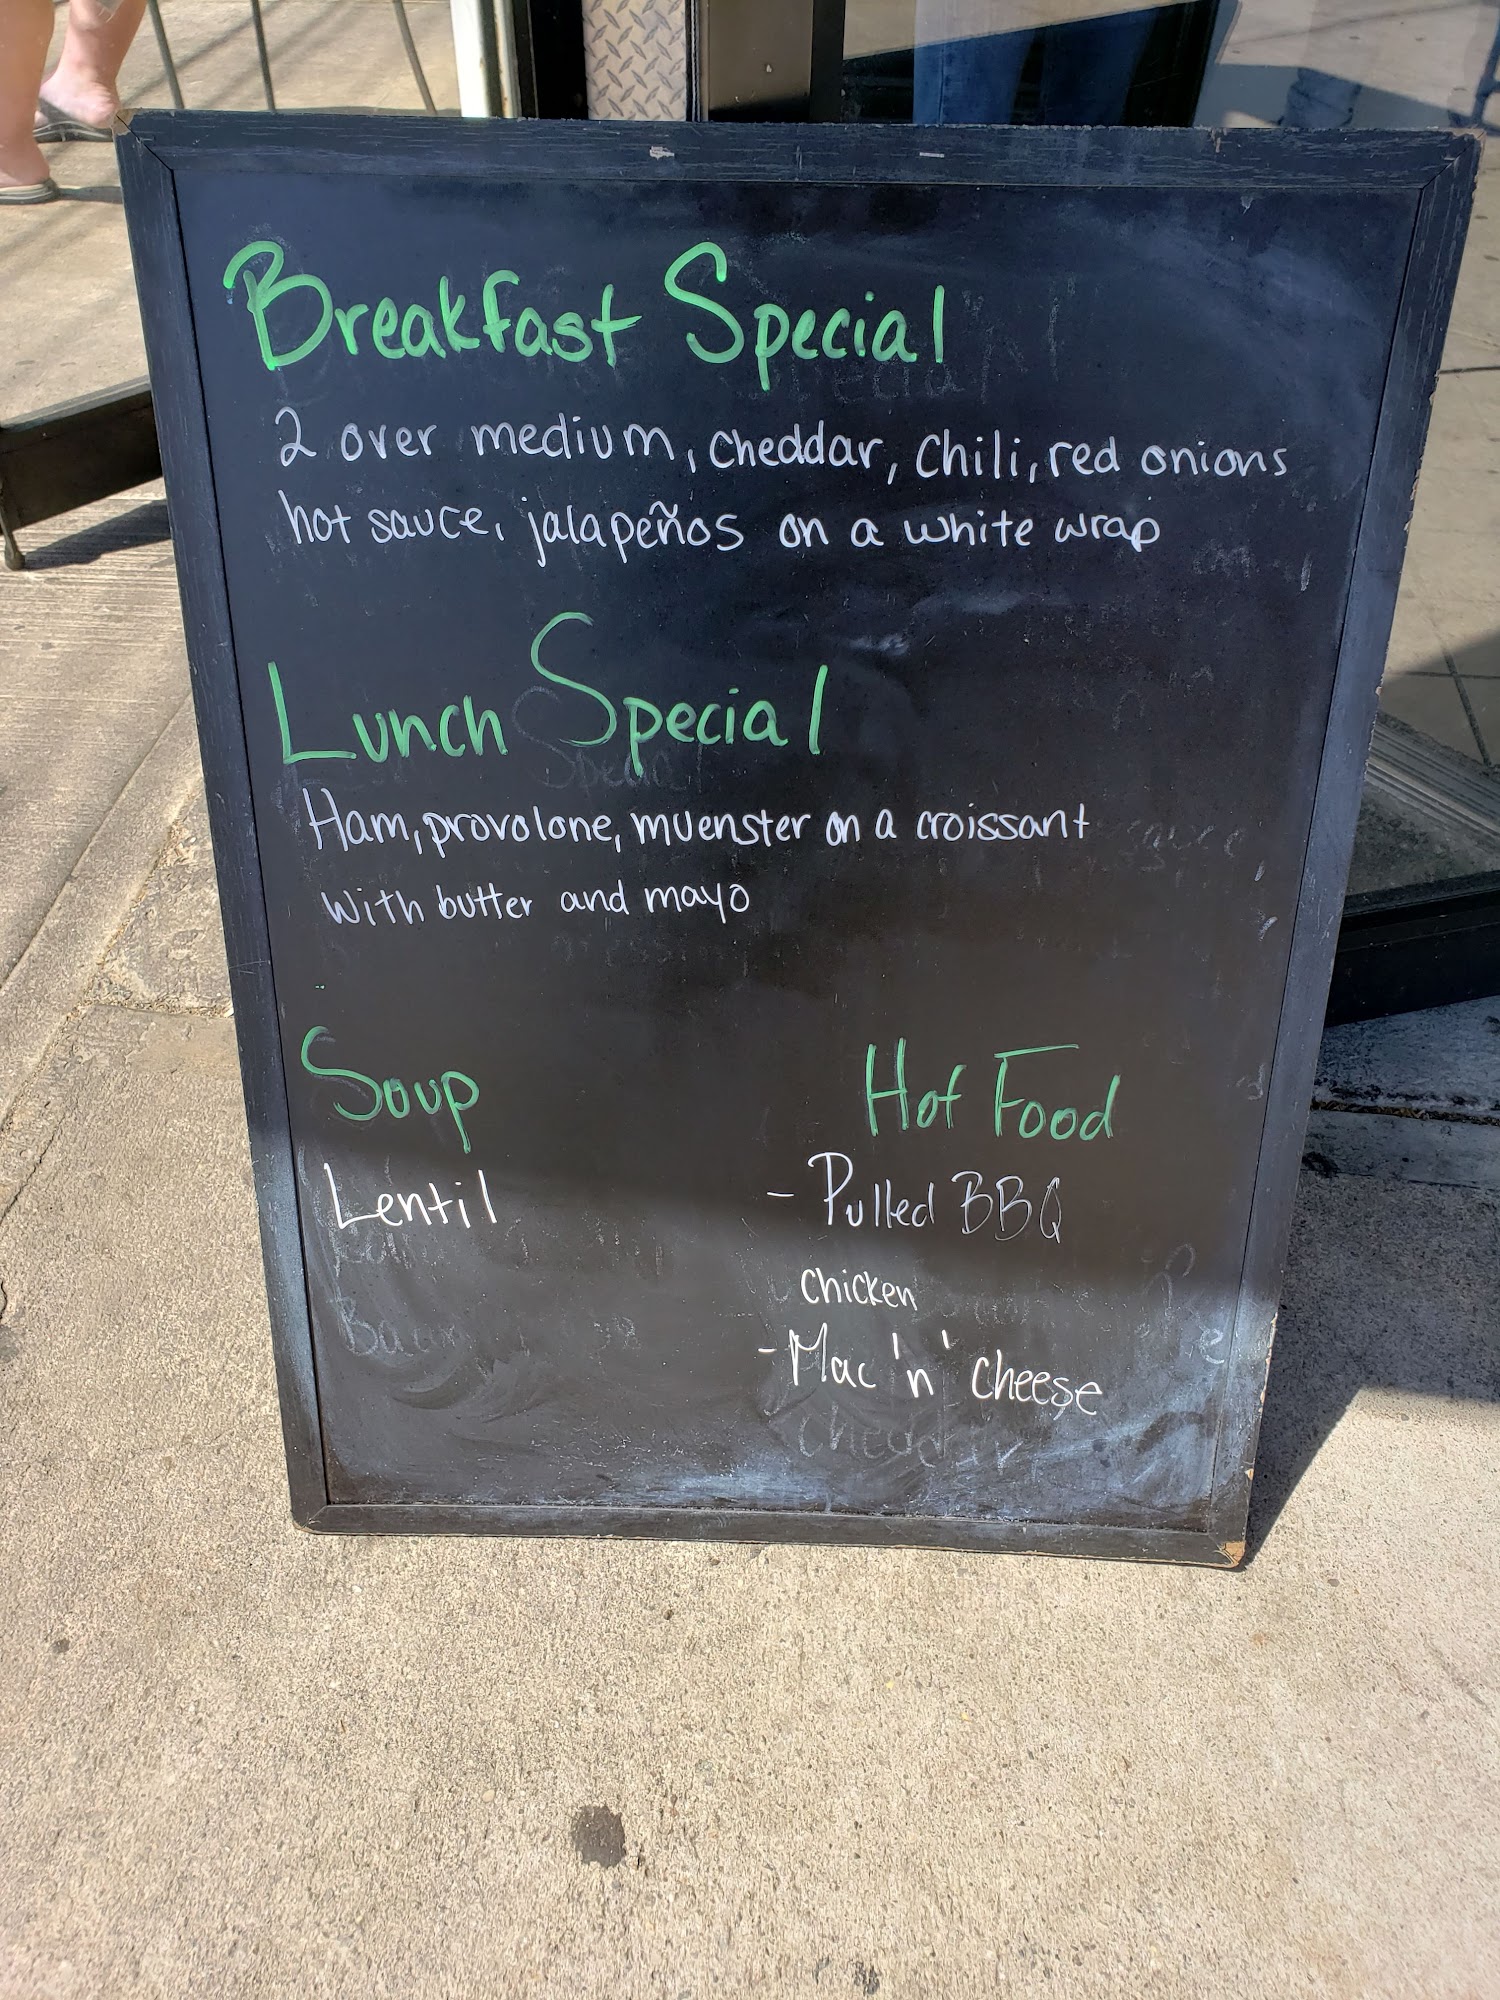 Breakfast Special
2 over medium, cheddar, chili, red onions
hot sauce, jalapeños on a white wrap
Lunch Special
Ham, provolone, muenster on a croissant
with butter and mayo
Soup
Lentil
Hot Food
- Pulled BBQ
chicken
- Mac 'n' cheese